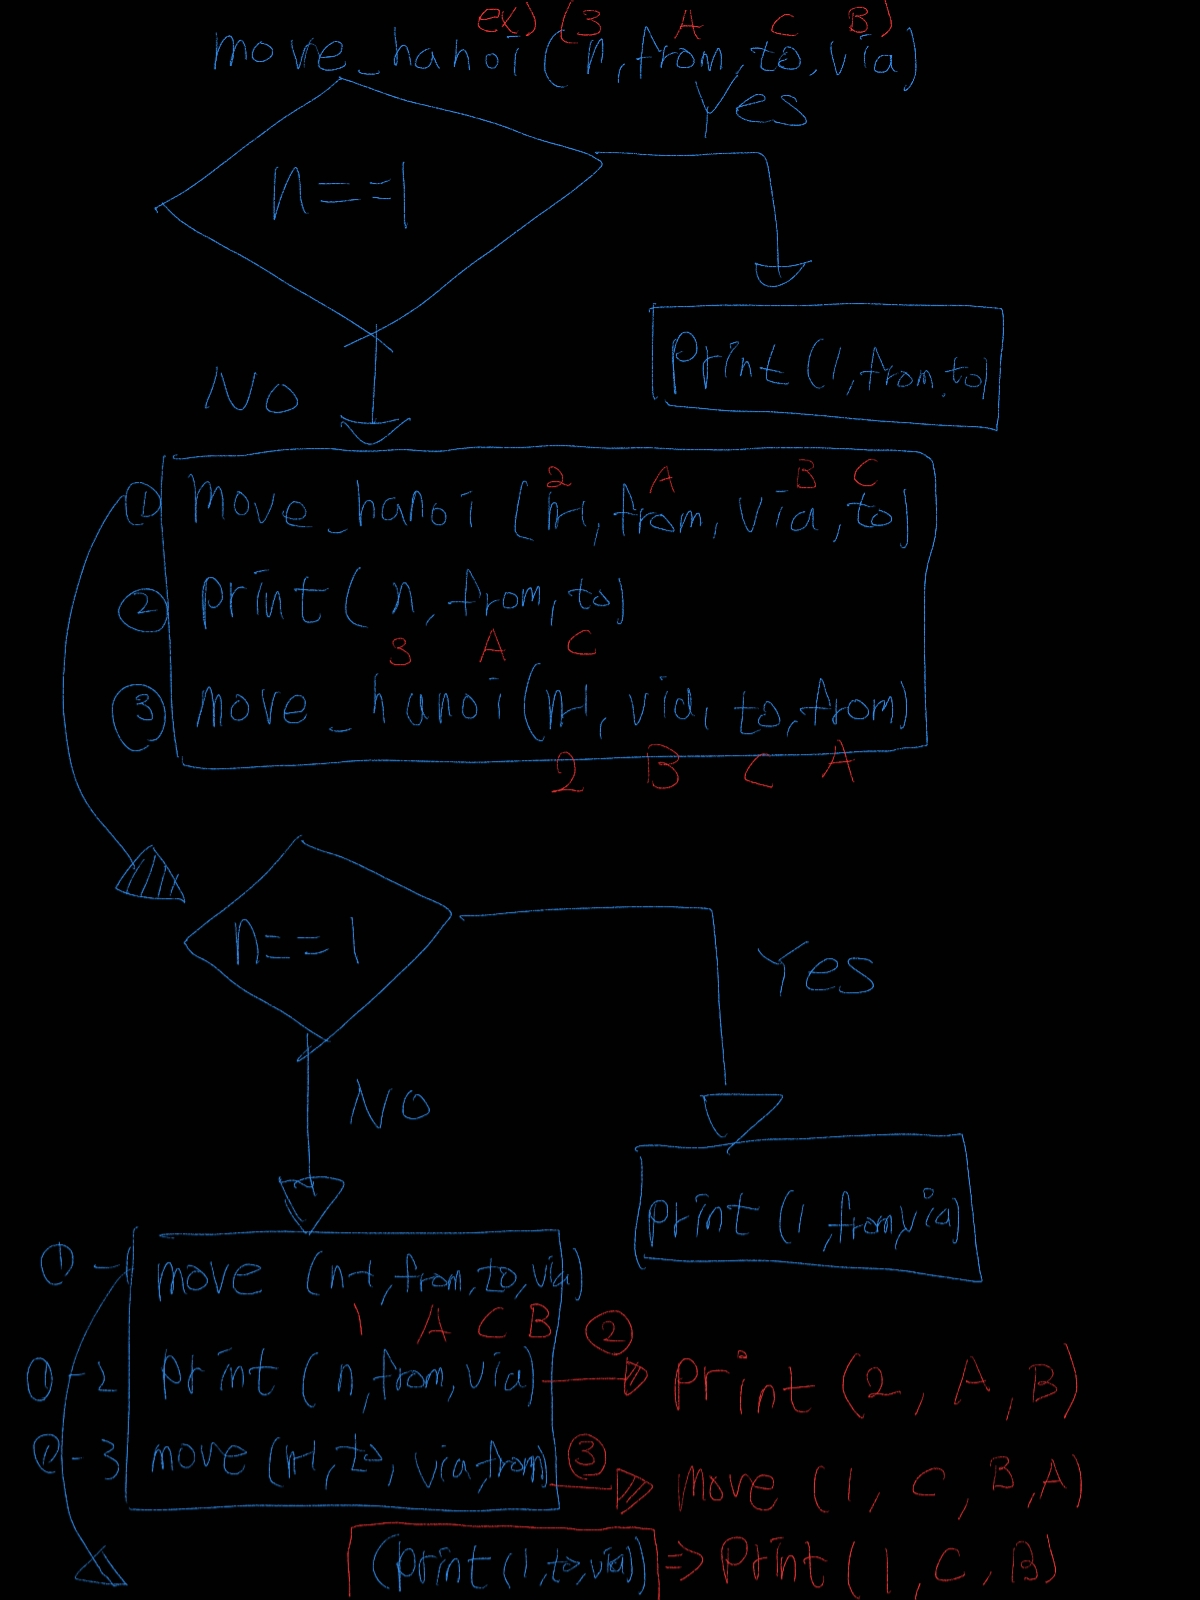 ex) (3 A C B)
move_hanoi (n, from, to, via)
Yes
n==1
print (1, from, to)
NO
2 A B C
① move_hanoi (n-1, from, via, to)
② print ( n, from, to)
3 A C
③ move_hanoi (n-1, via, to, from)
2 B C A
n==1
Yes
NO
print (1, from, via)
①-1 move (n-1, from, to, via)
1 A C B
①-2 print (n, from, via) ② print (2, A, B)
①-3 move (n-1, to, via, from) ③ move (1, C, B, A)
(print (1, to, via)) => print (1, C, B)